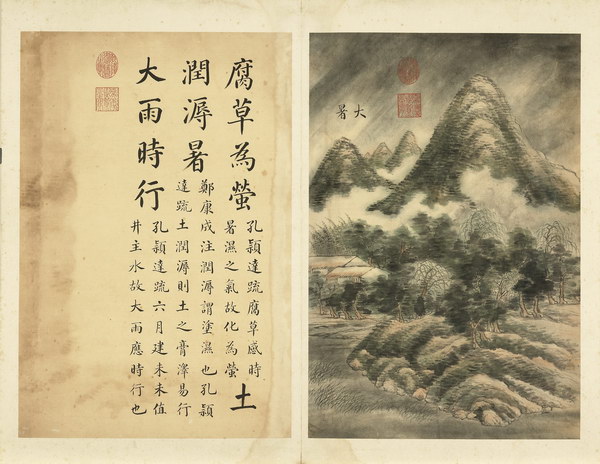 大暑
腐草為螢
孔穎達疏腐草感時
暑濕之氣故化為螢
土
潤溽暑
鄭康成注潤溽謂塗濕也孔穎
達疏土潤溽則土之膏澤易行
大雨時行
孔穎達疏六月建未未值
井主水故大雨應時行也